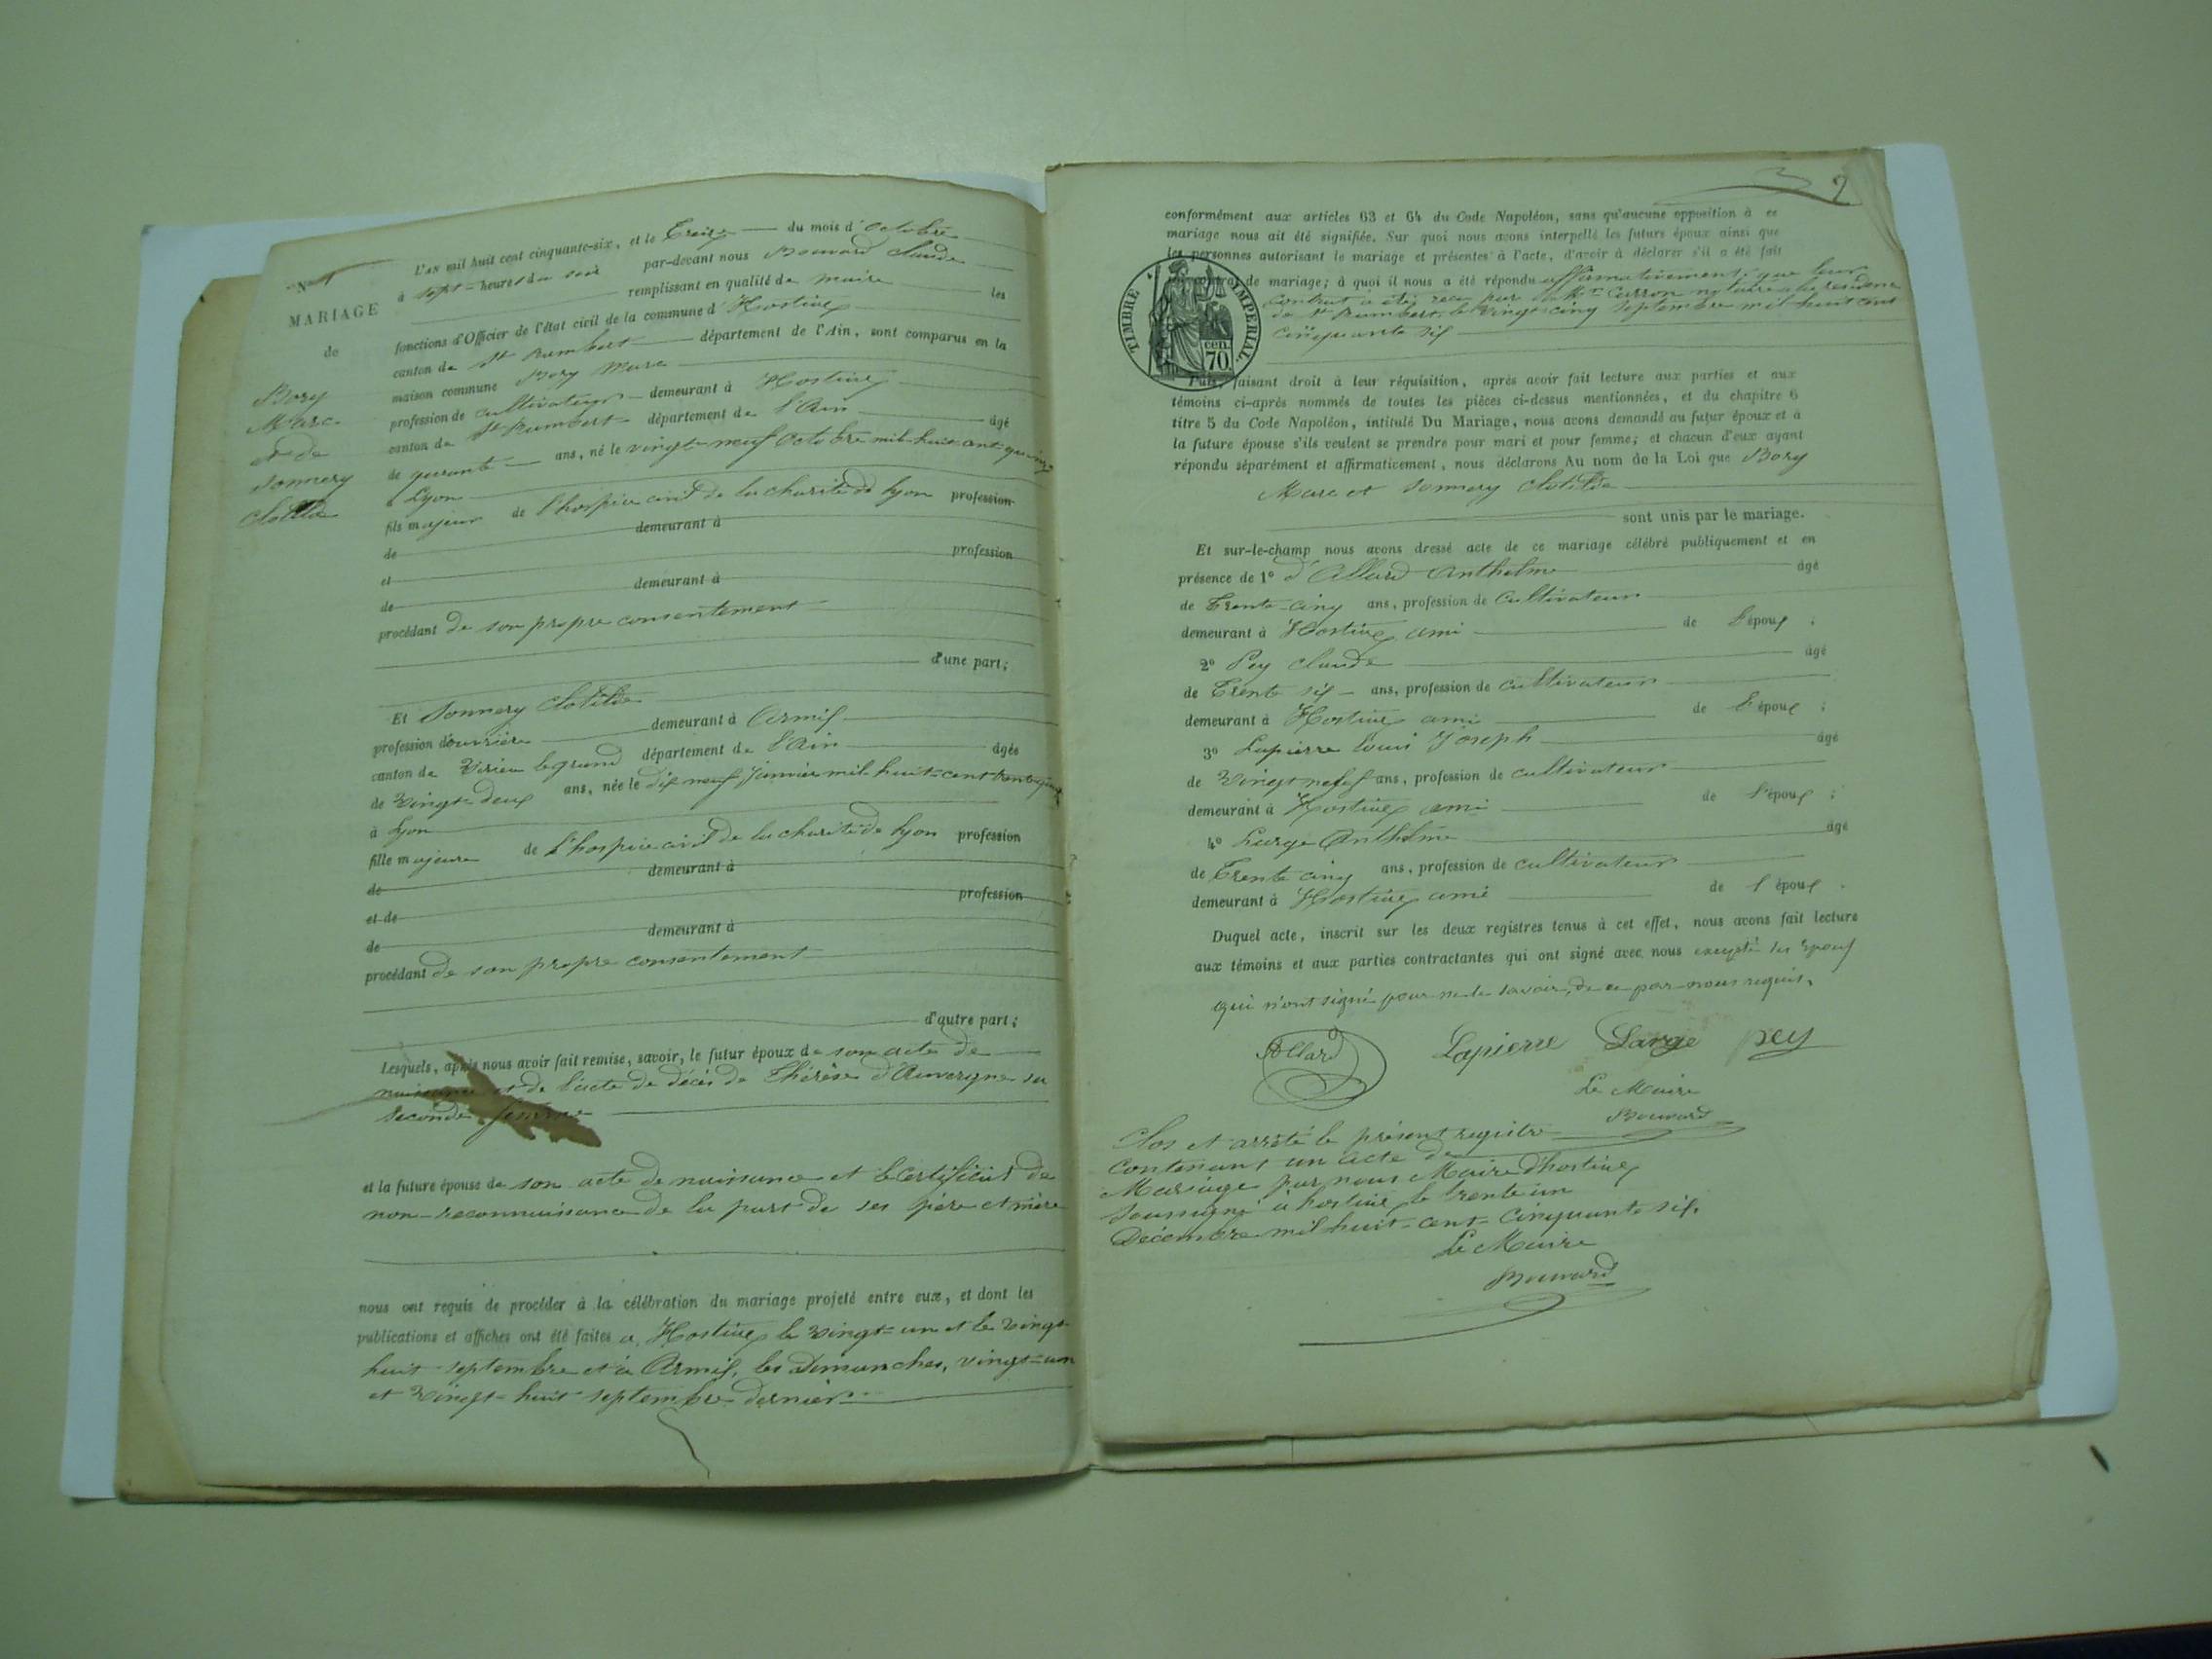 N° 1
MARIAGE
de
Bory
Marc
et de
Sonnery
Clotilde
L'AN mil huit cent cinquante-six, et le Treize du mois d'Octobre
à sept heures du soir par-devant nous Bouvard Claude
remplissant en qualité de maire les
fonctions d'Officier de l'état civil de la commune d'Hostiaz
canton de St Rambert département de l'Ain, sont comparus en la
maison commune Bory Marc
profession de cultivateur demeurant à Hostiaz
canton de St Rambert département de l'Ain âgé
de quarante ans, né le vingt-neuf Octobre mil-huit-cent-quinze
à Lyon
fils majeur de l'hospice civil de la charité de Lyon profession
de demeurant à
et profession
de demeurant à
procédant de son propre consentement
d'une part;
Et Sonnery Clotilde
profession d'ouvrière demeurant à Armix
canton de Virieu le grand département de l'Ain âgée
de vingt-deux ans, née le dix neuf Janvier mil huit-cent trente
à Lyon
fille majeure de l'hospice civil de la charité de Lyon profession
de demeurant à
et de profession
de demeurant à
procédant de son propre consentement
d'autre part;
Lesquels, après nous avoir fait remise, savoir, le futur époux de son acte de
naissance et de l'acte de décès de Thérèse d'Auvergne sa
seconde femme
et la future épouse de son acte de naissance et le certificat de
non-reconnaissance de la part de ses père et mère
nous ont requis de procéder à la célébration du mariage projeté entre eux, et dont les
publications et affiches ont été faites a Hostiaz le vingt-un et le vingt
huit septembre et à Armix, les Dimanches, vingt-un
et vingt-huit septembre dernier
2
conformément aux articles 63 et 64 du Code Napoléon, sans qu'aucune opposition à ce
mariage nous ait été signifiée. Sur quoi nous avons interpellé les future époux ainsi que
les personnes autorisant le mariage et présentes à l'acte, d'avoir à déclarer s'il a été fait
de mariage; à quoi il nous a été répondu affirmativement, que leur
contrat a été reçu par Me Carron notaire a la résidence
de St Rambert, le vingt cinq septembre mil huit cent
cinquante six
TIMBRE IMPERIAL
cen. 70
Puis, faisant droit à leur réquisition, après avoir fait lecture aux parties et aux
témoins ci-après nommés de toutes les pièces ci-dessus mentionnées, et du chapitre 6
titre 5 du Code Napoléon, intitulé Du Mariage, nous avons demandé au futur époux et à
la future épouse s'ils veulent se prendre pour mari et pour femme; et chacun d'eux ayant
répondu séparément et affirmativement, nous déclarons Au nom de la Loi que Bory
Marc et Sonnery Clotilde
sont unis par le mariage.
Et sur-le-champ nous avons dressé acte de ce mariage célébré publiquement et en
présence de 1° d'Allard Anthelme âgé
de Trente-cinq ans, profession de Cultivateur
demeurant à Hostiaz ami de l'époux;
2° Pey Claude âgé
de Trente six ans, profession de cultivateur
demeurant à Hostiaz ami de l'époux;
3° Lapierre Louis Joseph âgé
de vingt neuf ans, profession de cultivateur
demeurant à Hostiaz ami de l'époux;
4° Large Anthelme âgé
de Trente cinq ans, profession de cultivateur
demeurant à Hostiaz ami de l'époux.
Duquel acte, inscrit sur les deux registres tenus à cet effet, nous avons fait lecture
aux témoins et aux parties contractantes qui ont signé avec nous excepté les époux
qui n'ont signé pour ne le savoir, de ce par nous requis.
Allard Lapierre Large Pey
Le Maire
Bouvard
Clos et arrêté le présent registre
contenant un acte de
Mariage par nous Maire d'hostiaz
soussigné à hostiaz le trente un
Décembre mil huit-cent-cinquante six.
Le Maire
Bouvard